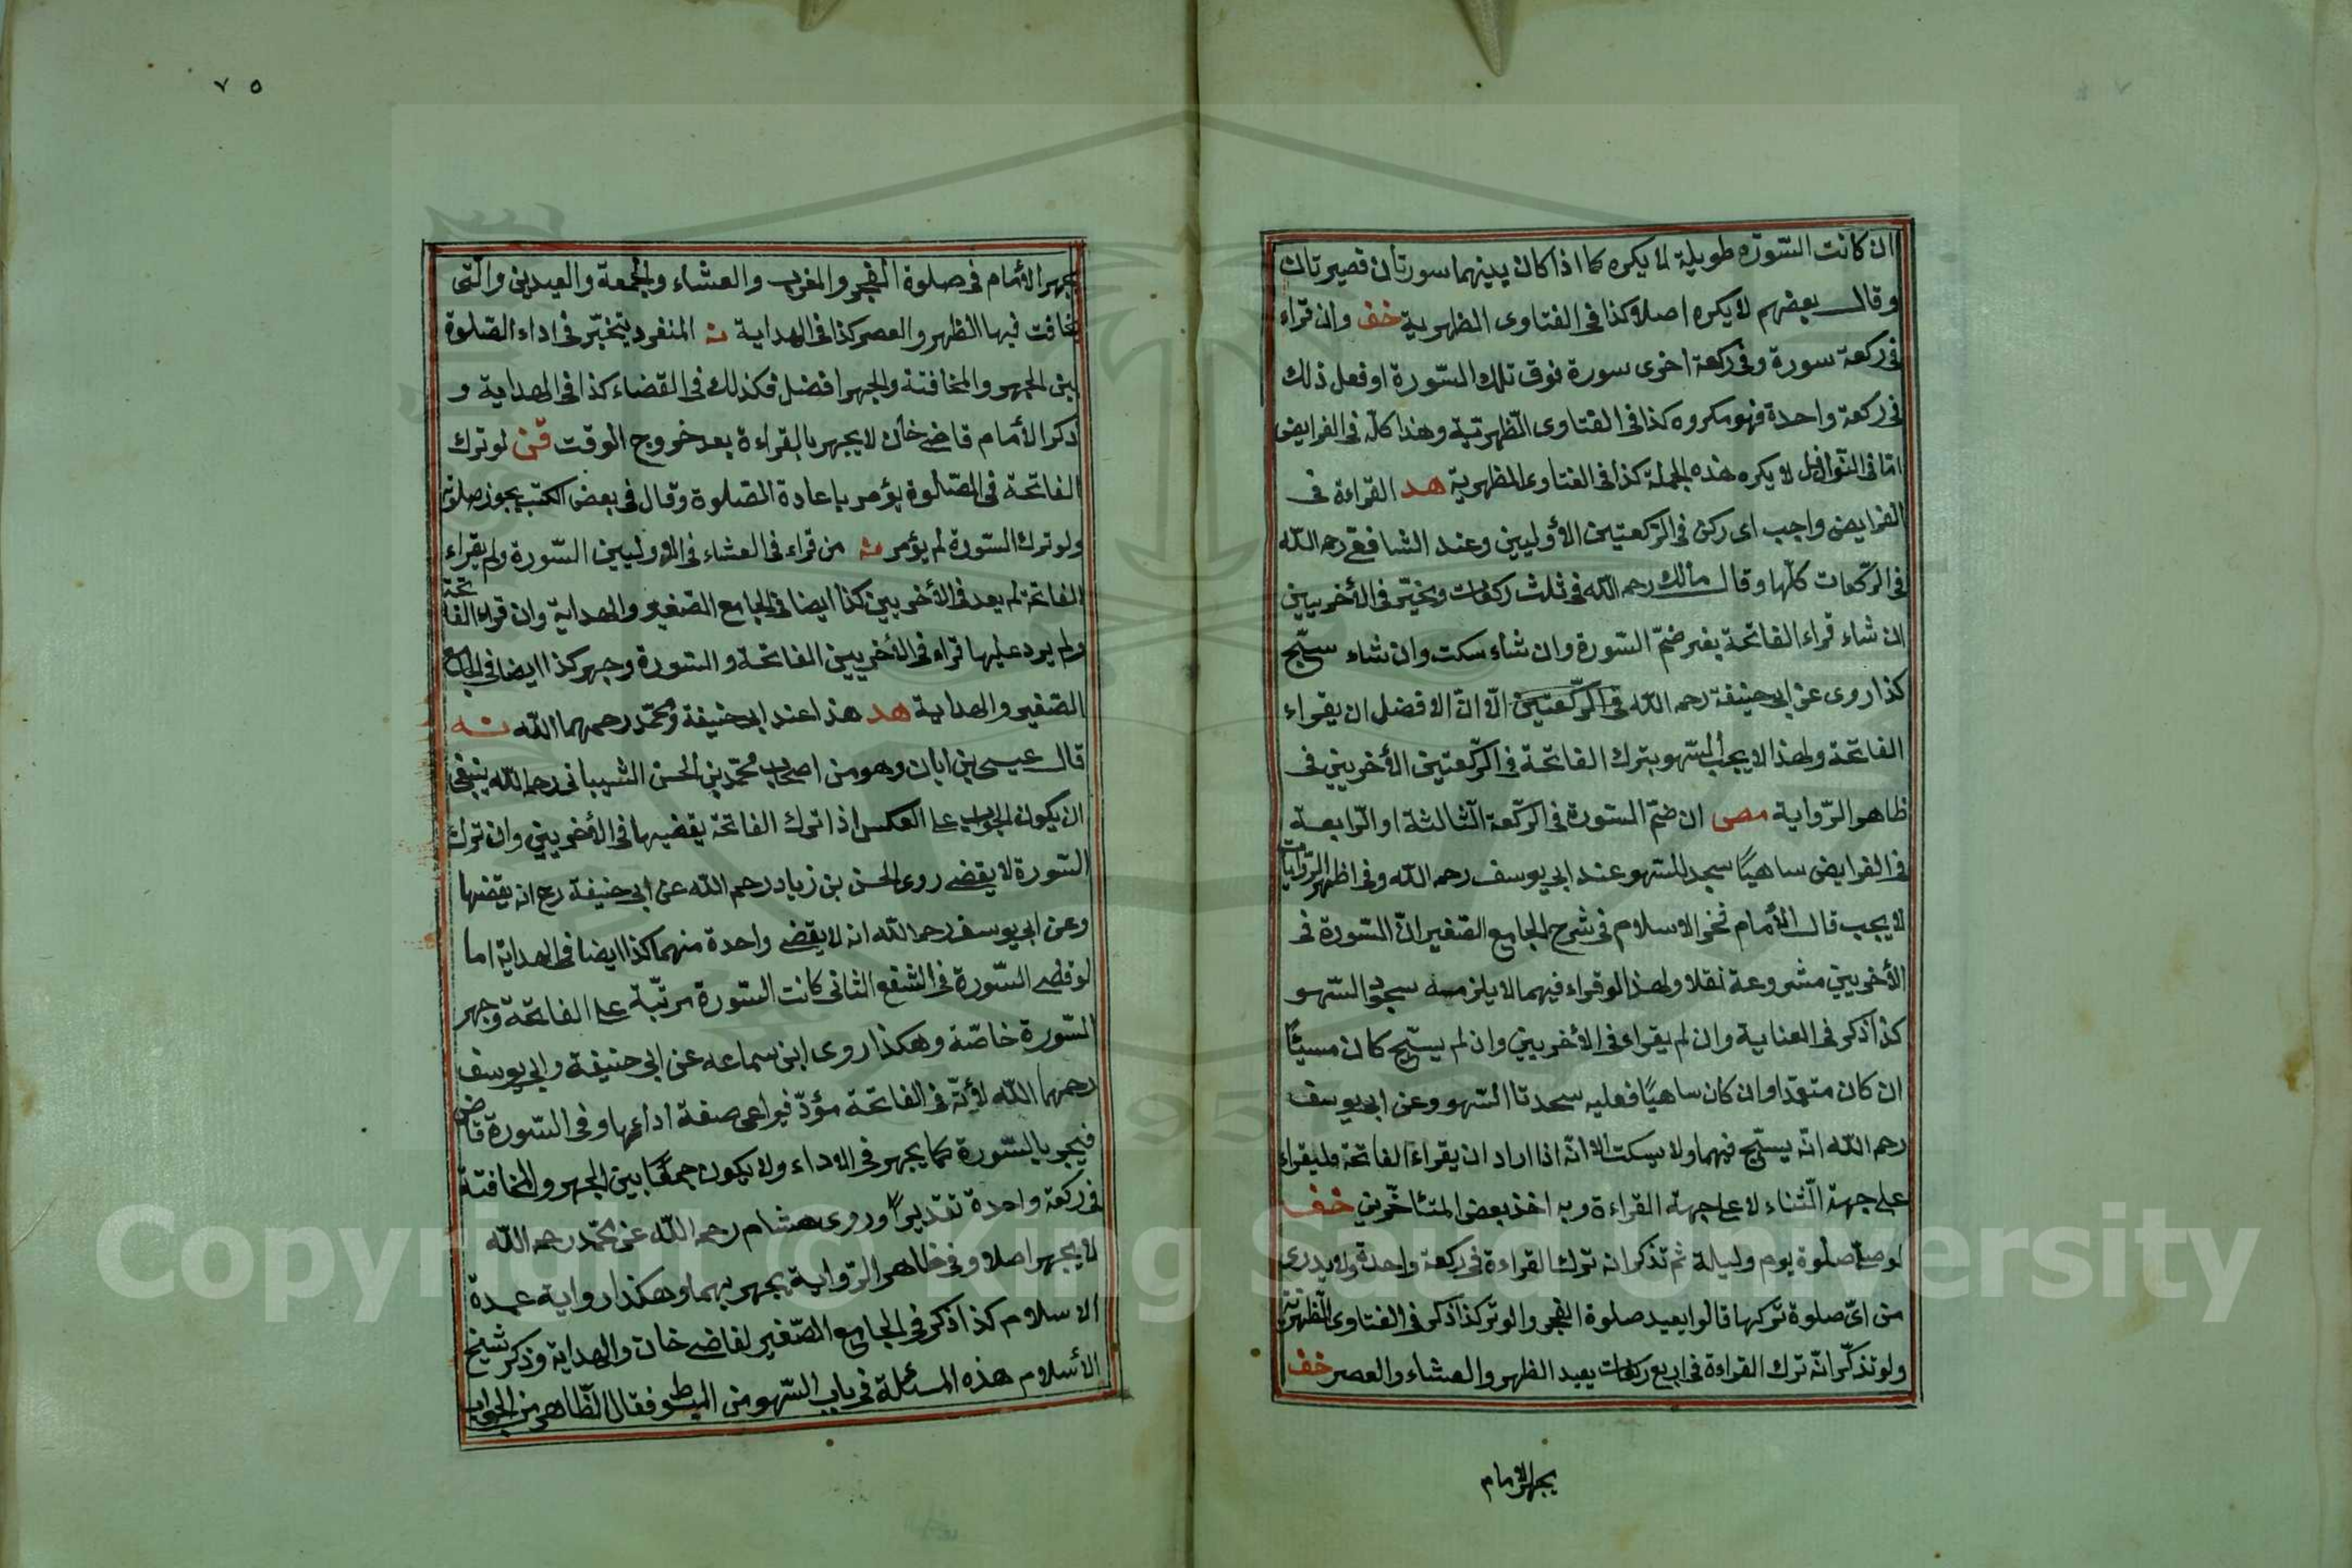 ان كانت السّورة طويلة لا يكره كما اذا كان بينهما سورتان قصيرتان
وقال بعضهم لا يكره اصلا كذا فى الفتاوى الظهرية خف وان قراء
فى ركعة سورة وفى ركعة اخرى سورة فوق تلك السّورة او فعل ذلك
فى ركعة واحدة فهو مكروه كذا فى الفتاوى الظهرتية وهذا كلّه فى الفرايض
امّا فى النّوافل لا يكره هذه الجملة كذا فى الفتاوى الظهرية هد القراءة فى
الفرايض واجب اى ركن فى الرّكعتين الأوليين وعند الشافعى رحمه اللّه
فى الرّكعات كلّها وقال مالك رحمه اللّه فى ثلث ركعات ويخيّر فى الأخريين
ان شاء قراء الفاتحة بغير ضمّ السّورة وان شاء سكت وان شاء سبّح
كذا روى عن ابى حنيفة رحمه اللّه فى الرّكعتين الّا انّ الافضل ان يقراء
الفاتحة ولهذا لا يجب السّهو بترك الفاتحة فى الرّكعتين الأخريين فى
ظاهر الرّواية مص ان ضمّ السّورة فى الرّكعة الثالثة او الرّابعة
فى الفرايض ساهيًا سجد للسّهو عند ابى يوسف رحمه اللّه وفى اظهر الرّوايات
لا يجب قال الأمام فخر الاسلام فى شرح الجامع الصّغير انّ السّورة فى
الأخريين مشروعة نفلا ولهذا لو قراء فيهما لا يلزمه سجود السّهو
كذا ذكر فى العناية وان لم يقراء فى الأخريين وان لم يسبّح كان مسيئًا
ان كان متعمّدا وان كان ساهيًا فعليه سجدتا السّهو وعن ابى يوسف
رحمه اللّه انّه يسبّح فيهما ولا يسكت الا انّه اذا اراد ان يقراء الفاتحة فليقراء
على جهة الثّناء لا على جهة القراءة وبه اخذ بعض المتأخّرين خف
لو صلّى صلوة يوم وليلة ثم تذكر انه ترك القراءة فى ركعة واحدة ولا يدرى
من اىّ صلوة تركها قالوا يعيد صلوة الفجر والوتر كذا ذكر فى الفتاوى الظهرية
ولو تذكّر انّه ترك القراءة فى اربع ركعات يعيد الظهر والعشاء والعصر خف
يجهر الامام
٧٥
يجهر الأمام فى صلوة الفجر والمغرب والعشاء والجمعة والعيدين والّتى
يخافت فيها الظهر والعصر كذا فى الهداية نه المنفرد يتخيّر فى اداء الصّلوة
بين الجهر والمخافتة والجهر افضل فكذلك فى القضاء كذا فى الهداية و
ذكر الأمام قاضى خان لا يجهر بالقراءة بعد خروج الوقت قن لو ترك
الفاتحة فى الصّلوة يؤمر باعادة الصّلوة وقال فى بعض الكتب يجوز صلوته
ولو ترك السّورة لم يؤمر منه من قراء فى العشاء فى الاوليين السّورة ولم يقراء
الفاتحة لم يعد فى الأخريين كذا ايضا فى الجامع الصّغير والهداية وان قراء الفاتحة
ولم يرد عليها قراء فى الأخريين الفاتحة والسّورة وجهر كذا ايضا فى الجامع
الصّغير والهداية هد هذا عند ابى حنيفة ومحمّد رحمهما اللّه نه
قال عيسى بن ابان وهو من اصحاب محمّد بن الحسن الشّيبانى رحمه اللّه ينبغى
ان يكون الجواب على العكس اذا ترك الفاتحة يقضيها فى الأخريين وان ترك
السّورة لا يقضى روى الحسن بن زياد رحمه اللّه عن ابى حنيفة رح انه يقضيها
وعن ابى يوسف رحمه اللّه انه لا يقضى واحدة منهما كذا ايضا فى الهداية اما
لو قضى السّورة فى الشّفع الثانى كانت السّورة مرتّبة على الفاتحة وجهر
السّورة خاصّة وهكذا روى ابن سماعه عن ابى حنيفة وابى يوسف
رحمهما اللّه لأنّه فى الفاتحة مؤدّ فيراعى صفة ادائها وفى السّورة قاض
فيجهر بالسّورة كما يجهر فى الاداء ولا يكون جمعًا بين الجهر والمخافتة
فى ركعة واحدة تقديرًا وروى هشام رحمه اللّه عن محمّد رحمه اللّه
لا يجهر اصلا وفى ظاهر الرّواية يجهر بهما وهكذا رواية عمدة
الاسلام كذا ذكر فى الجامع الصّغير لقاضى خان والهداية وذكر شيخ
الأسلام هذه المسئلة فى باب السّهو من المبسوط فقال الظّاهر من الجواب
Copyright © King Saud University
1957